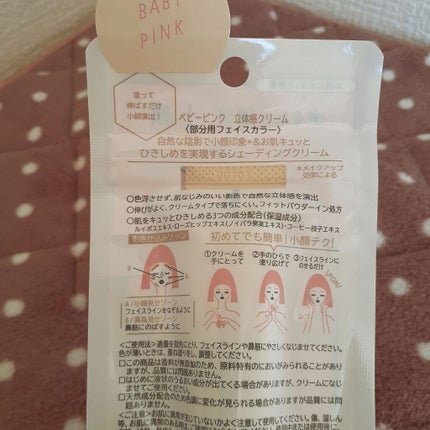 BABY
PINK
塗って
伸ばすだけ
小顔演出！
ベビーピンク 立体感クリーム
〈部分用フェイスカラー〉
自然な陰影で小顔印象*＆お肌キュッと
ひきしめを実現するシェーディングクリーム
*メイクアップ
効果による
○色浮きせず、肌なじみのいい影色で自然な立体感を演出
○伸びがよく、クリームタイプで落ちにくい。フィットパウダーイン処方
○肌をキュッとひきしめる3つの成分配合(保湿成分)
ルイボスエキス・ローズヒップエキス(ノイバラ果実エキス)・コーヒー種子エキス
影色仕込みゾーン
初めてでも簡単！小顔テク！
①クリームを
手にとって
②手のひらで
塗り広げて
③フェイスラインに
のせるだけ
A/小顔見せゾーン
フェイスラインをなぞるように
B/鼻高見せゾーン
鼻筋にのばすように
＜ご使用法＞適量を指先にとり、フェイスラインや鼻筋にやさしくなじませてください。
色が薄いときは、重ね塗りをし、調整してください。
□この商品は香料が無添加のため、原料特有のにおいがみられることがあり
ますが、品質には問題ありません。
□はじめに液状のうるおい成分が出てくる場合がありますが、クリームになじ
ませてご使用ください。
□天然成分配合のため色調に変化が見られる場合がありますが品質には問
題ありません。
＜ご注意＞お肌に異常が生じていないかよく注意して使用してください。傷、湿しん